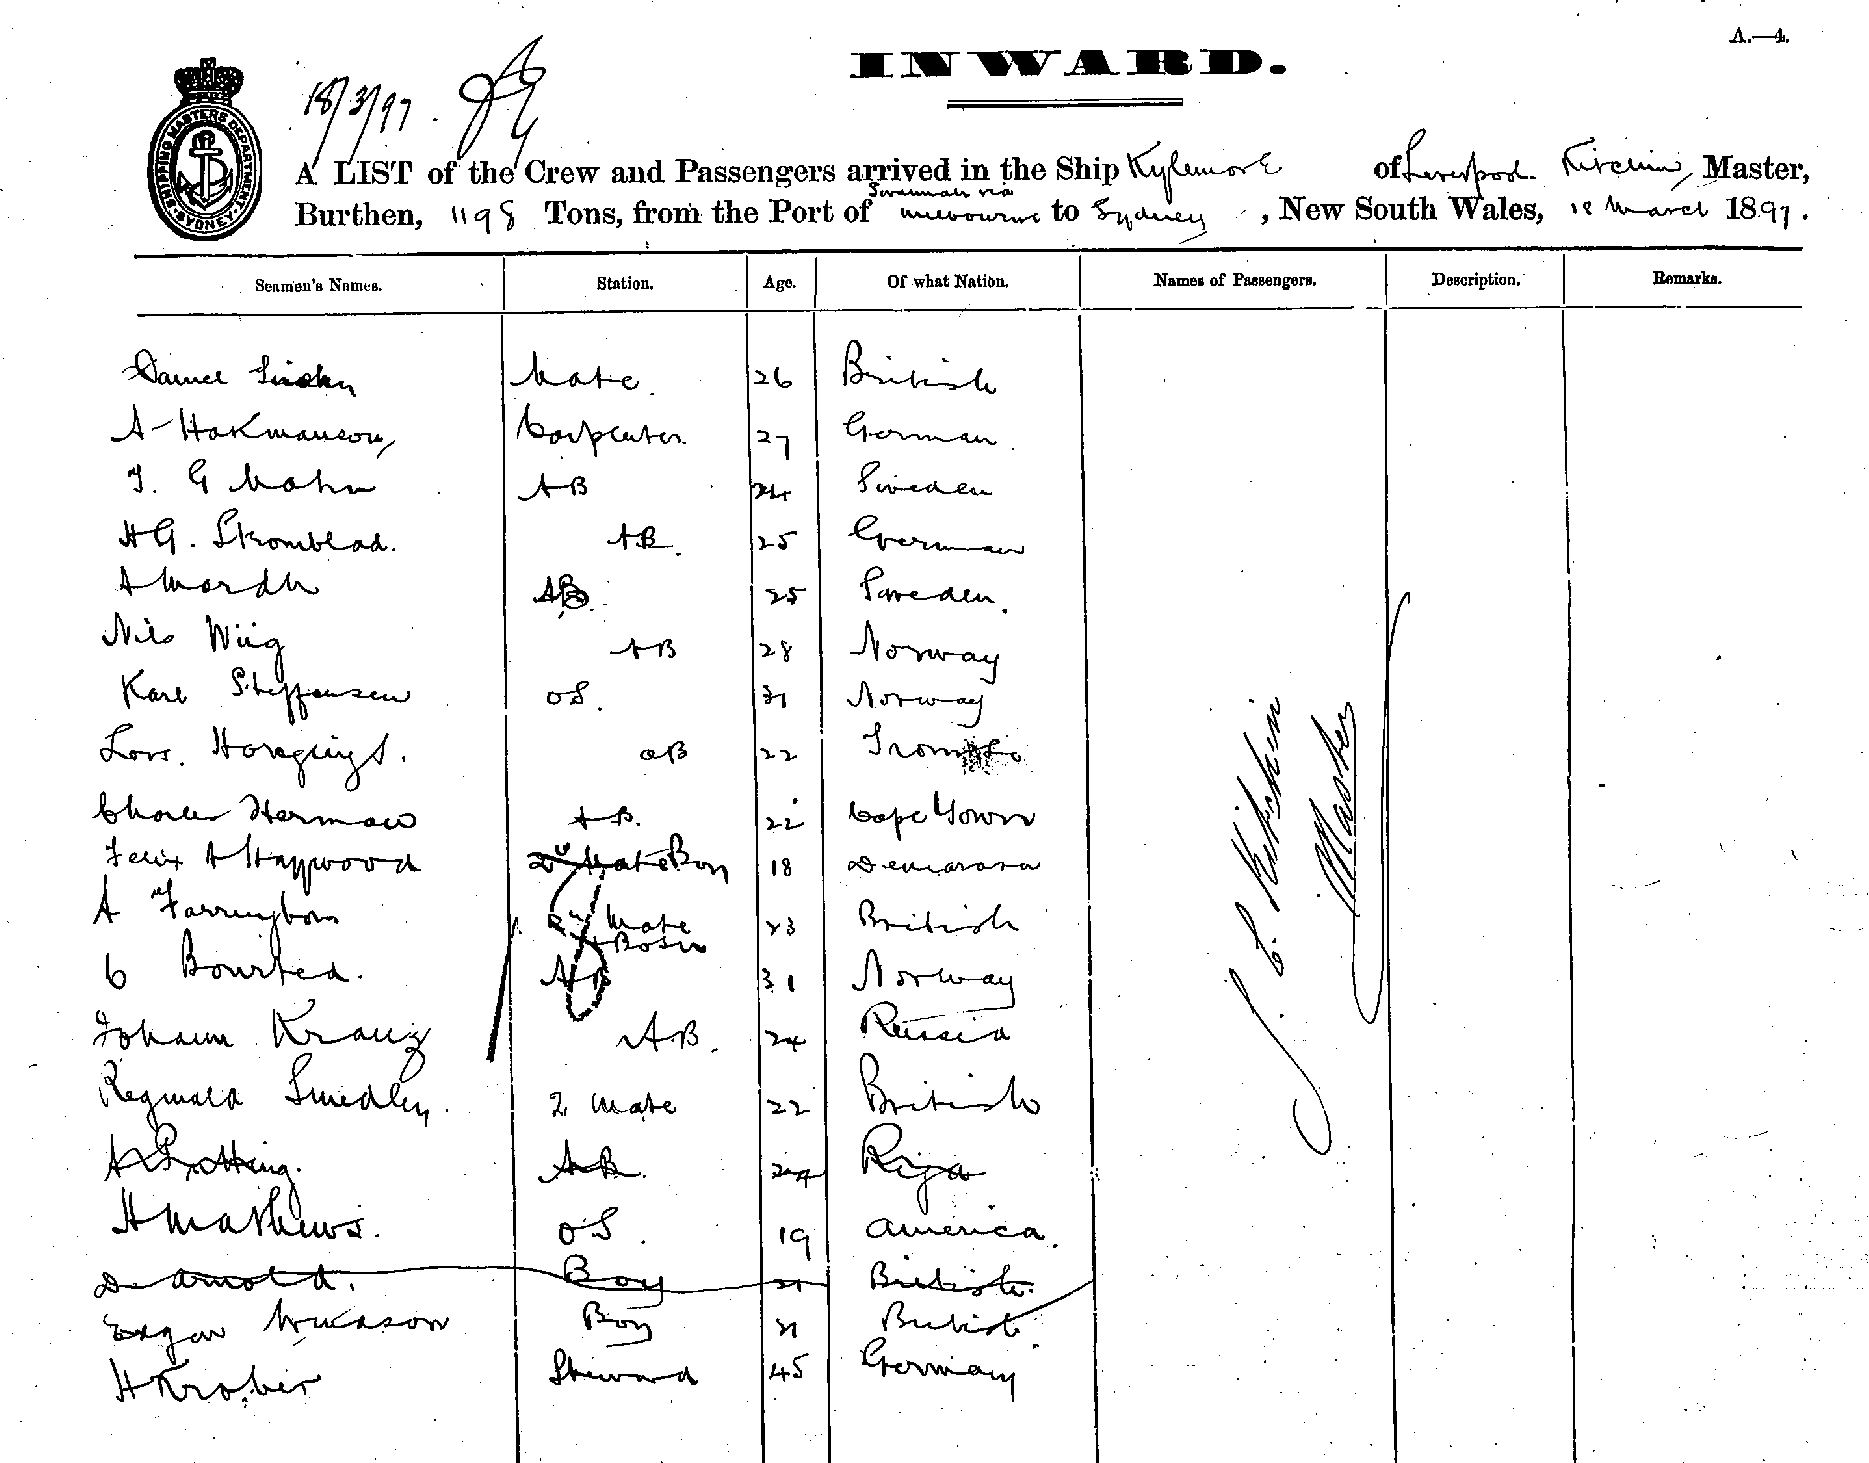 A.—4.
INWARD.
18/3/97.
SHIPPING MASTERS DEPARTMENT SYDNEY
A LIST of the Crew and Passengers arrived in the Ship Kylemore of Liverpool. Kitchin, Master,
Savannah via
Burthen, 1198 Tons, from the Port of Melbourne to Sydney, New South Wales, 18 March 1897.
Seamen's Names. Station. Age. Of what Nation. Names of Passengers. Description. Remarks.
Daniel Mate. 26 British
A Hakmanson, Carpenter. 27 German
G Mahn AB 24 Sweden
HG. Stromblad. AB. 25 German
A Mardh AB 25 Sweden.
Nils Wiig AB 28 Norway
Karl Steffensen OS. 21 Norway
AB 22 Tromso
Charles Herman AB. 22 Cape Town
Felix A Haywood 2d Mate Boy 18 Demarara
A Farrington 2nd Mate 23 British
+ Bosn
C AB 31 Norway
Johann Kranz AB. 24 Russia
Reginald Smedley. 2 Mate 22 British
A AB. 24 Riga
H Mathews. OS. 19 America.
D Arnold. Boy 21 British.
Edgar Boy 21 British
H Krober Steward 45 Germany
J. C. Kitchin
Master